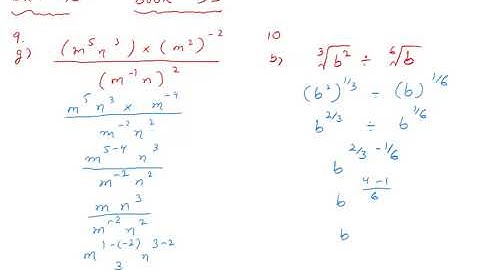 9.
g) (m^5 n^3) × (m^2)^-2
(m^-1 n)^2
m^5 n^3 × m^-4
m^-2 n^2
m^5-4 n^3
m^-2 n^2
m n^3
m^-2 n^2
m^1-(-2) n^3-2
3
10
b) ∛b^2 ÷ ⁶√b
(b^2)^1/3 ÷ (b)^1/6
b^2/3 ÷ b^1/6
b^2/3 -1/6
b^4-1/6
b